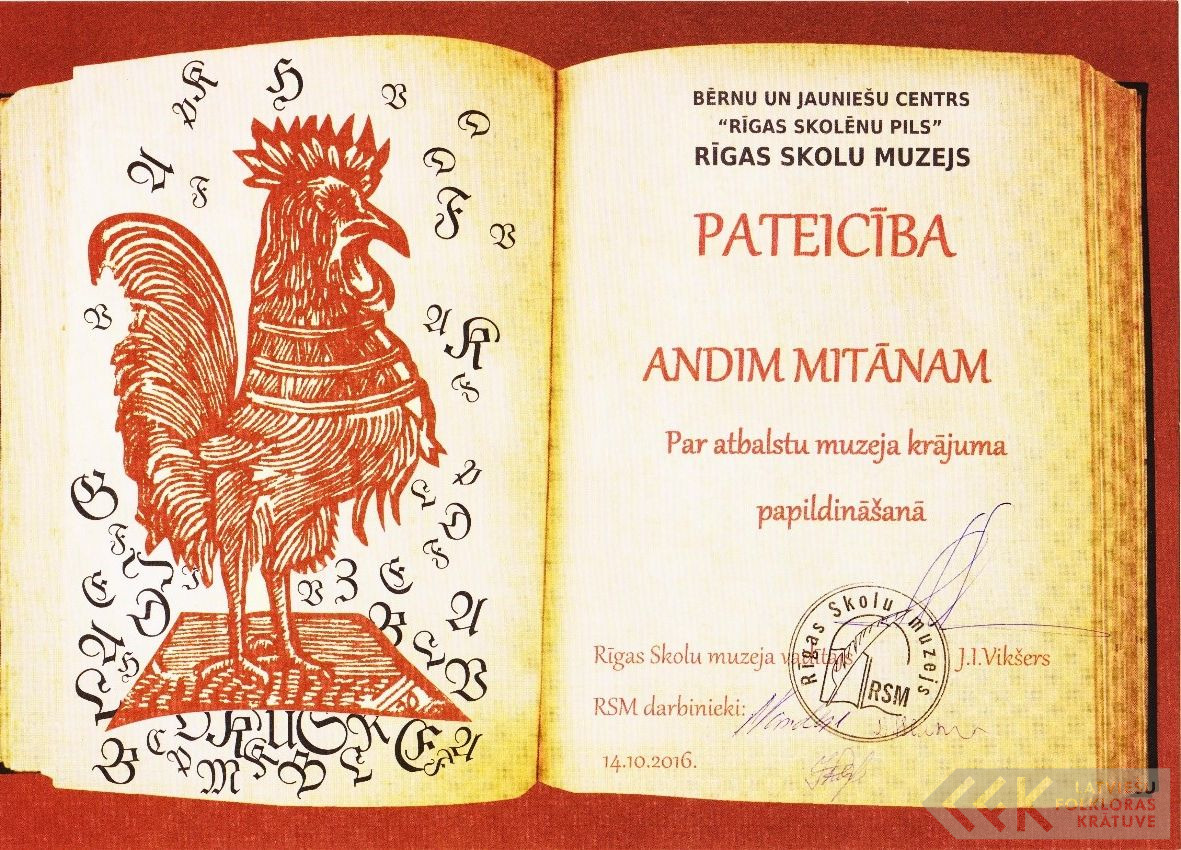 BĒRNU UN JAUNIEŠU CENTRS
“RĪGAS SKOLĒNU PILS”
RĪGAS SKOLU MUZEJS
PATEICĪBA
ANDIM MITĀNAM
Par atbalstu muzeja krājuma
papildināšanā
Rīgas Skolu muzejs
RSM
Rīgas Skolu muzeja vadītājs J.I.Vikšers
RSM darbinieki:
14.10.2016.
LATVIEŠU
FOLKLORAS
KRĀTUVE